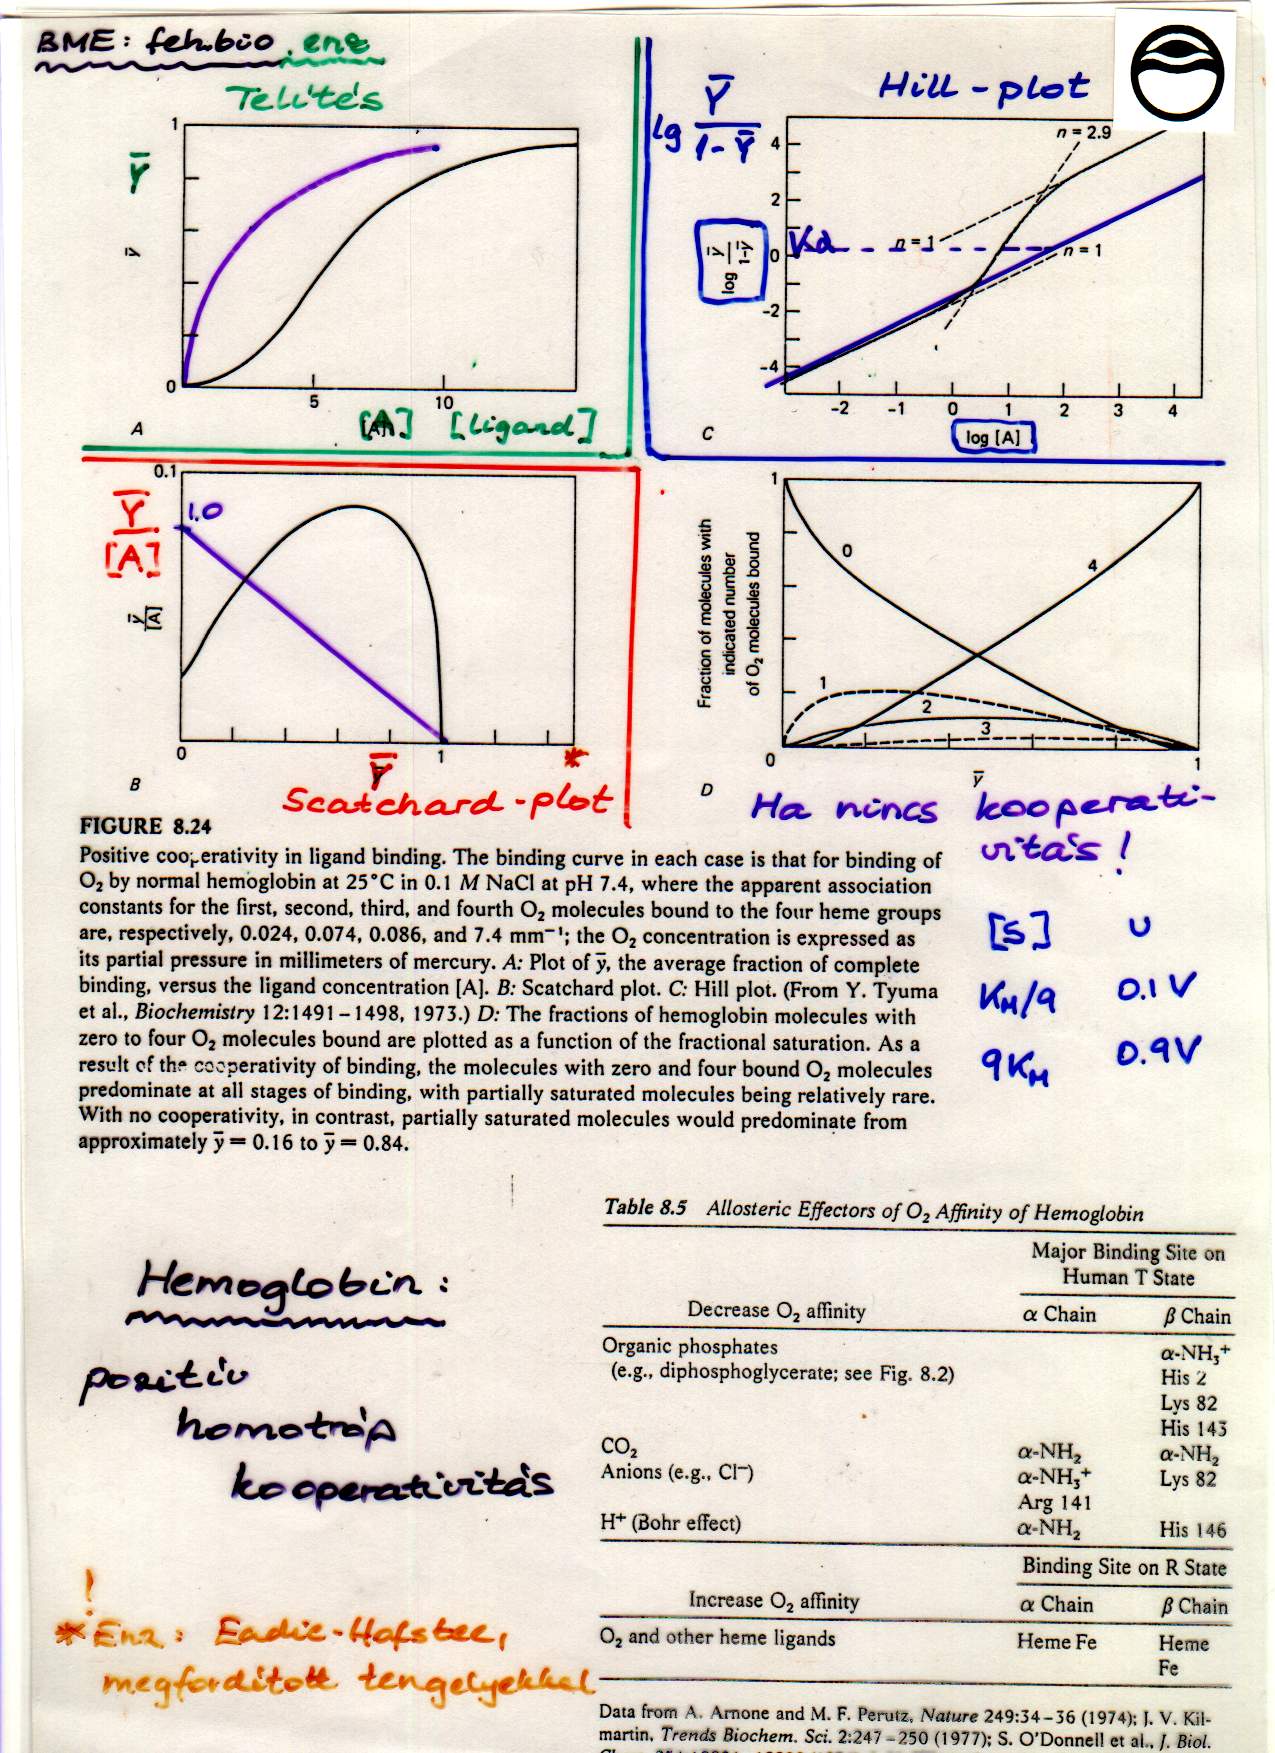 BME: feh.bio, enz
Telítés
1
Ȳ
ȳ
0
5
10
[A]
[ligand]
A
Hill-plot
lg Ȳ / 1-Ȳ
log ȳ / 1-ȳ
4
2
0
-2
-4
Kd
n = 2.9
n = 1
n = 1
-2 -1 0 1 2 3 4
log [A]
C
0.1
1.0
Ȳ / [A]
ȳ / [A]
0
1
Ȳ
*
B
Scatchard-plot
Fraction of molecules with
indicated number
of O₂ molecules bound
1
0
4
1
2
3
0
1
ȳ
D
Ha nincs kooperati-
vitás!
[S] v
KM/9 0.1V
9KM 0.9V
FIGURE 8.24
Positive cooperativity in ligand binding. The binding curve in each case is that for binding of
O₂ by normal hemoglobin at 25°C in 0.1 M NaCl at pH 7.4, where the apparent association
constants for the first, second, third, and fourth O₂ molecules bound to the four heme groups
are, respectively, 0.024, 0.074, 0.086, and 7.4 mm⁻¹; the O₂ concentration is expressed as
its partial pressure in millimeters of mercury. A: Plot of ȳ, the average fraction of complete
binding, versus the ligand concentration [A]. B: Scatchard plot. C: Hill plot. (From Y. Tyuma
et al., Biochemistry 12:1491–1498, 1973.) D: The fractions of hemoglobin molecules with
zero to four O₂ molecules bound are plotted as a function of the fractional saturation. As a
result of the cooperativity of binding, the molecules with zero and four bound O₂ molecules
predominate at all stages of binding, with partially saturated molecules being relatively rare.
With no cooperativity, in contrast, partially saturated molecules would predominate from
approximately ȳ = 0.16 to ȳ = 0.84.
Hemoglobin:
pozitiv
homotróp
kooperativitás
!
* Enz: Eadie-Hofstee,
megfordított tengelyekkel
Table 8.5 Allosteric Effectors of O₂ Affinity of Hemoglobin
Major Binding Site on
Human T State
Decrease O₂ affinity α Chain β Chain
Organic phosphates α-NH₃⁺
(e.g., diphosphoglycerate; see Fig. 8.2) His 2
Lys 82
His 143
CO₂ α-NH₂ α-NH₂
Anions (e.g., Cl⁻) α-NH₃⁺ Lys 82
Arg 141
H⁺ (Bohr effect) α-NH₂ His 146
Binding Site on R State
Increase O₂ affinity α Chain β Chain
O₂ and other heme ligands Heme Fe Heme
Fe
Data from A. Arnone and M. F. Perutz, Nature 249:34–36 (1974); J. V. Kil-
martin, Trends Biochem. Sci. 2:247–250 (1977); S. O'Donnell et al., J. Biol.